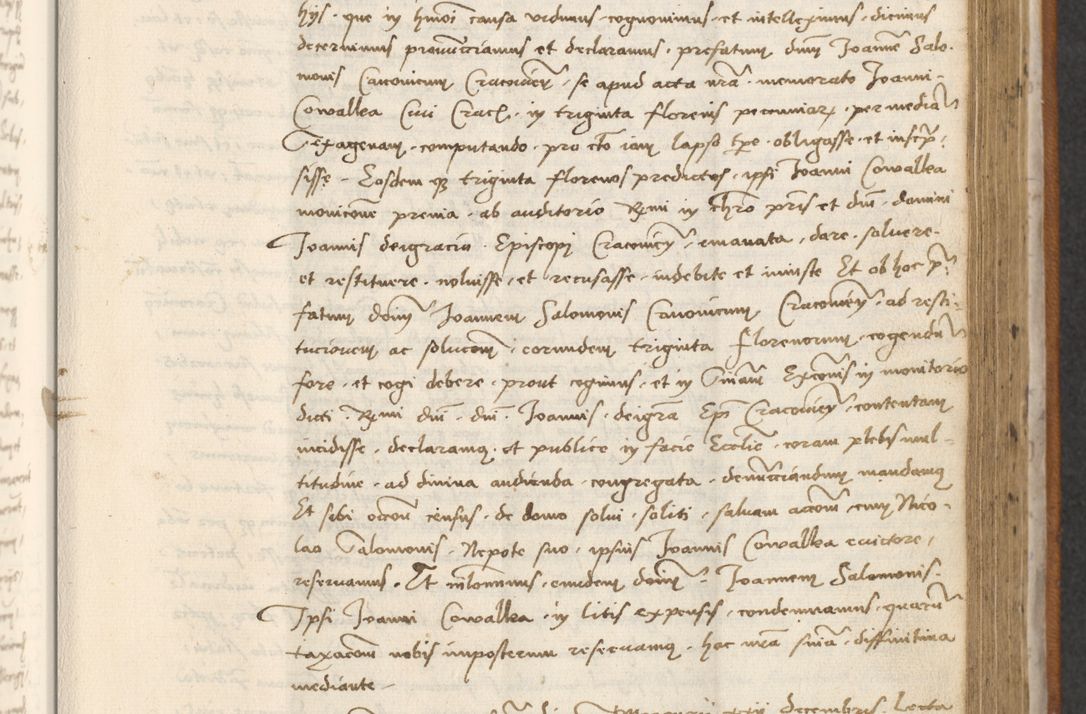 hijs · que in hmoi causa vidimus · cognovimus · et intelleximus · dicimus
decernimus pronuncciamus et declaramus · prefatum dnm Joanne Salo-
monis Canonicum Cracovien · se apud acta nra · memorato Joanni-
Cowalka Civi Crac. · in triginta florenis pecuniar · per media
Sexagenam · computando · pro cto iam lapso tpe · obligasse · et inscrp-
sisse – Eosdem qz triginta florenos predictos · ipsi Joanni Cowalka
monicone previa · ab auditorio Rmi in chro pris et dni · domini
Joannis dei gracia Episcopi Cracovien · emanata , dare · solvere-
et restituere · noluisse · et recusasse · indebite et iniuste Et ob hoc p-
fatum dom Joannem Salomonis Canonicum Cracovien · ad resti-
tucionem ac solucom · eorundem triginta florenorum · cogendu
fore · et cogi debere · prout cogimus · et in Sniam Exconis in monitorio
dicti Rmi dni · dni · Joannis · dei gra Epi Cracovien · contentam
incidisse · declaramq · et publice in facie Ecclie · coram plebis mul-
titudine · ad divina audienda · congregata · denuncciandum mandamq
Et sibi occon census · de domo solvi · soliti · salvam accom · cum Nico-
lao Salomonis · Nepote suo · ipsius Joannis Cowalka evictore ,
reservamus . Et eundem dom Joannem Salomonis-
Ipsi Joanni Cowalka · in litis expensis · condemnamus · quaru
taxacom nobis imposterum reservamq · hac nra snia · diffinitiva
mediante –
decembris · Lecta